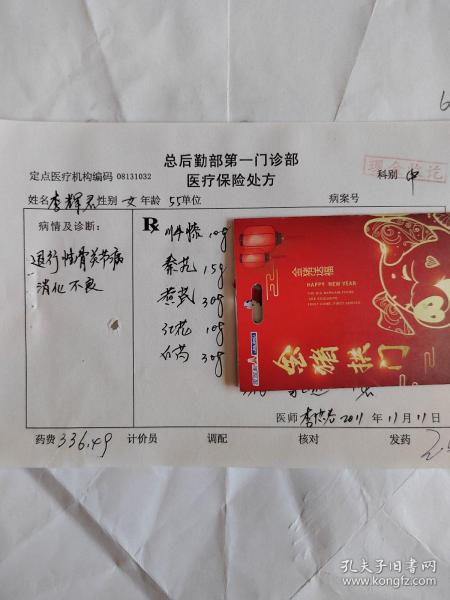 总后勤部第一门诊部
定点医疗机构编码 08131032
医疗保险处方
科别 中
姓名 李辉君 性别 女 年龄 55 单位
病案号
病情及诊断:
退行性骨关节病
消化不良
R
川牛膝 10g
秦艽 15g
30g
红花 10g
白芍 30g
金猪送福
HAPPY NEW YEAR
金猪拱门
医师
2011 年 11 月 11 日
药费 336.49
计价员
调配
核对
发药
孔夫子旧书网
www.kongfz.com